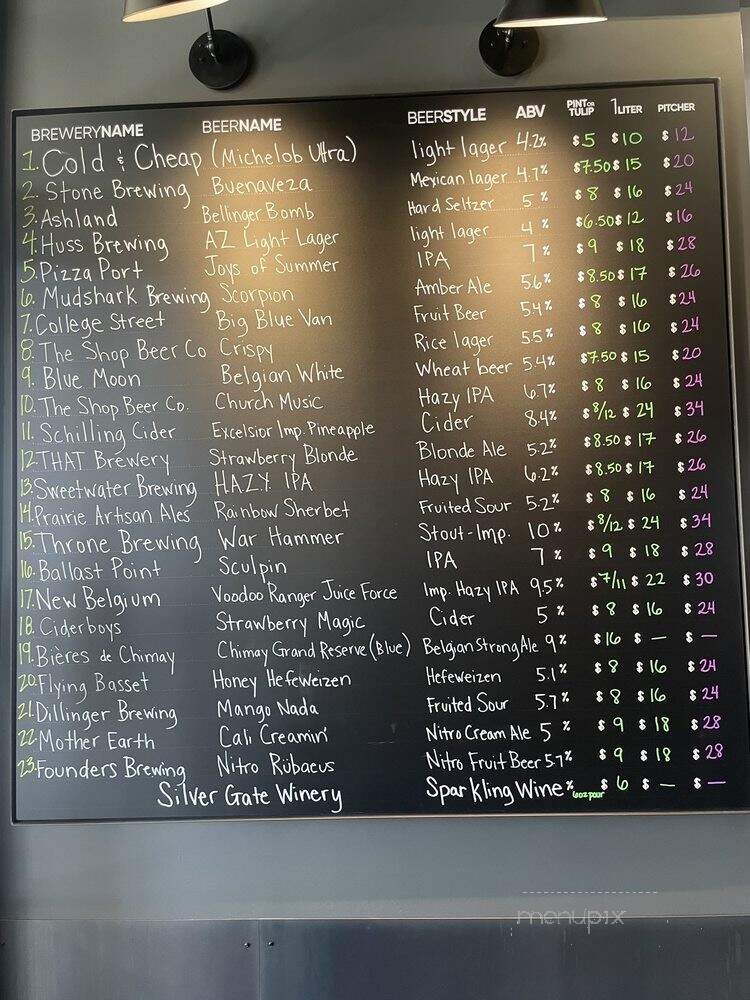 BREWERYNAME BEERNAME BEERSTYLE ABV PINT OR TULIP 1LITER PITCHER
1. Cold & Cheap (Michelob Ultra) light lager 4.2% $5 $10 $12
2. Stone Brewing Buenaveza Mexican lager 4.7% $7.50 $15 $20
3. Ashland Bellinger Bomb Hard Seltzer 5% $8 $16 $24
4. Huss Brewing AZ Light Lager light lager 4% $6.50 $12 $16
5. Pizza Port Joys of Summer IPA 7% $9 $18 $28
6. Mudshark Brewing Scorpion Amber Ale 5.6% $8.50 $17 $26
7. College Street Big Blue Van Fruit Beer 5.4% $8 $16 $24
8. The Shop Beer Co Crispy Rice lager 5.5% $8 $16 $24
9. Blue Moon Belgian White Wheat beer 5.4% $7.50 $15 $20
10. The Shop Beer Co. Church Music Hazy IPA 6.7% $8 $16 $24
11. Schilling Cider Excelsior Imp. Pineapple Cider 8.4% $8/12 $24 $34
12. THAT Brewery Strawberry Blonde Blonde Ale 5.2% $8.50 $17 $26
13. Sweetwater Brewing HAZY IPA Hazy IPA 6.2% $8.50 $17 $26
14. Prairie Artisan Ales Rainbow Sherbet Fruited Sour 5.2% $8 $16 $24
15. Throne Brewing War Hammer Stout-Imp. 10% $8/12 $24 $34
16. Ballast Point Sculpin IPA 7% $9 $18 $28
17. New Belgium Voodoo Ranger Juice Force Imp. Hazy IPA 9.5% $7/11 $22 $30
18. Ciderboys Strawberry Magic Cider 5% $8 $16 $24
19. Bières de Chimay Chimay Grand Reserve (Blue) Belgian Strong Ale 9% $16 $ — $ —
20. Flying Basset Honey Hefeweizen Hefeweizen 5.1% $8 $16 $24
21. Dillinger Brewing Mango Nada Fruited Sour 5.7% $8 $16 $24
22. Mother Earth Cali Creamin' Nitro Cream Ale 5% $9 $18 $28
23. Founders Brewing Nitro Rübaeus Nitro Fruit Beer 5.7% $9 $18 $28
Silver Gate Winery Sparkling Wine % 6oz pour $6 $ — $ —
menupix